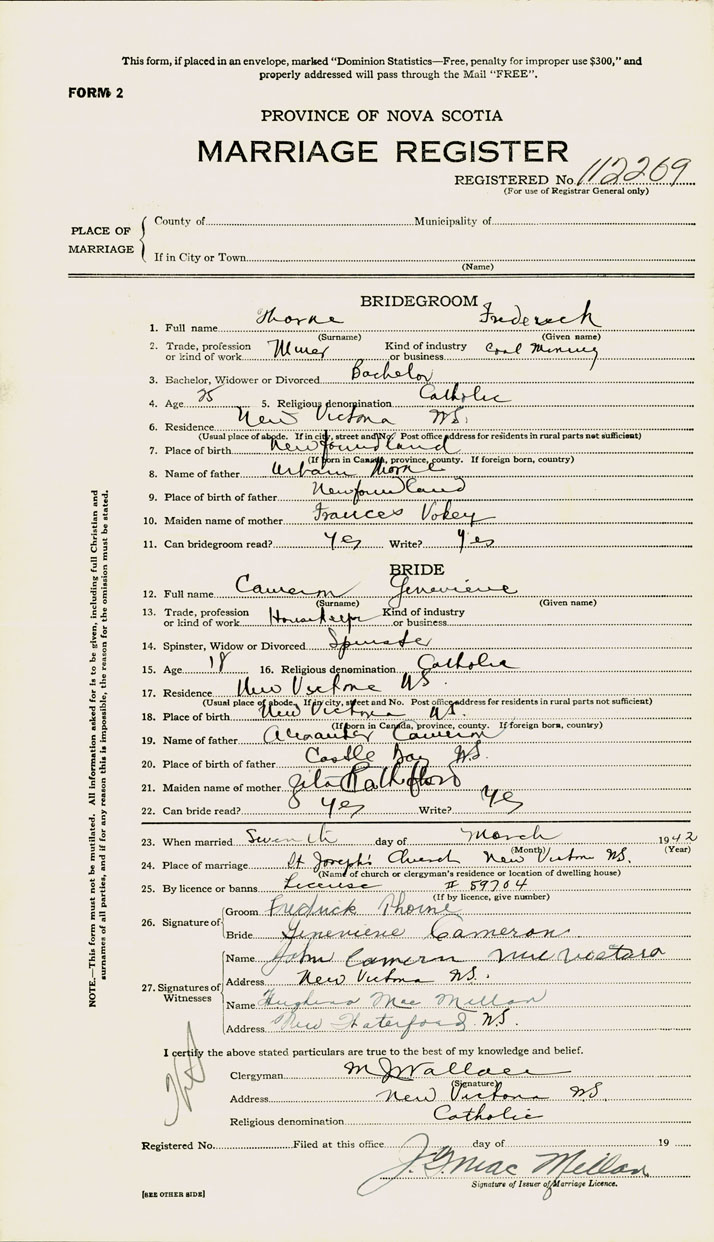 This form, if placed in an envelope, marked "Dominion Statistics—Free, penalty for improper use $300," and
properly addressed will pass through the Mail "FREE".
FORM 2
PROVINCE OF NOVA SCOTIA
MARRIAGE REGISTER
REGISTERED No. 112269
(For use of Registrar General only)
PLACE OF MARRIAGE
County of Municipality of
If in City or Town
(Name)
BRIDEGROOM
1. Full name Thorne Frederick
(Surname) (Given name)
2. Trade, profession or kind of work Miner Kind of industry or business Coal Mining
3. Bachelor, Widower or Divorced Bachelor
4. Age 25 5. Religious denomination Catholic
6. Residence New Victoria N.S.
(Usual place of abode. If in city, street and No. Post office address for residents in rural parts not sufficient)
7. Place of birth Newfoundland
(If born in Canada, province, county. If foreign born, country)
8. Name of father Urbain Thorne
9. Place of birth of father Newfoundland
10. Maiden name of mother Frances Vokey
11. Can bridegroom read? Yes Write? Yes
BRIDE
12. Full name Cameron Genevieve
(Surname) (Given name)
13. Trade, profession or kind of work Housekeeper Kind of industry or business
14. Spinster, Widow or Divorced Spinster
15. Age 18 16. Religious denomination Catholic
17. Residence New Victoria N.S.
(Usual place of abode. If in city, street and No. Post office address for residents in rural parts not sufficient)
18. Place of birth New Victoria N.S.
(If born in Canada, province, county. If foreign born, country)
19. Name of father Alexander Cameron
20. Place of birth of father Castle Bay N.S.
21. Maiden name of mother Zita
22. Can bride read? Yes Write? Yes
23. When married Seventh day of March 1942
(Month) (Year)
24. Place of marriage St Joseph's Church New Victoria N.S.
(Name of church or clergyman's residence or location of dwelling house)
25. By licence or banns License # 59704
(If by licence, give number)
26. Signature of
Groom Fredrick Thorne
Bride Genevieve Cameron
27. Signatures of Witnesses
Name John Cameron
Address New Victoria N.S.
Name Hughena Mac Millan
Address New Waterford N.S.
I certify the above stated particulars are true to the best of my knowledge and belief.
Clergyman M J Wallace
(Signature)
Address New Victoria N.S.
Religious denomination Catholic
Registered No. Filed at this office day of 19
J. G. Mac Millan
Signature of Issuer of Marriage Licence.
[SEE OTHER SIDE]
NOTE.—This form must not be mutilated. All information asked for is to be given, including full Christian and
surnames of all parties, and if for any reason this is impossible, the reason for the omission must be stated.